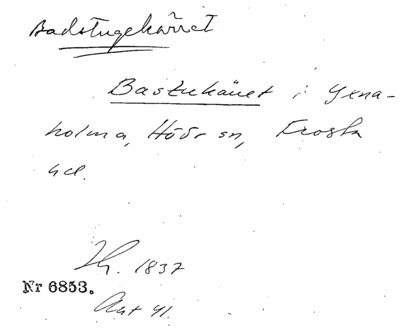 Badstugekärret
Bastukäret i Yxna-
holma, Höör sn, Frosta
hd.
1837
Nr 6853.
Akt 41.